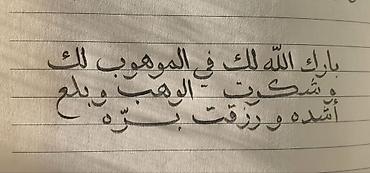 بارك الله لك في الموهوب لك
وشكرت الوهب وبلغ
أشده ورزقت برّه